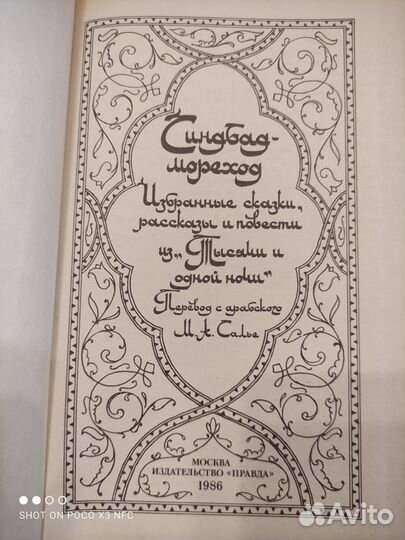 Синдбад-
мореход
Избранные сказки,
рассказы и повести
из „Тысячи и
одной ночи“
Перевод с арабского
М. А. Салье
МОСКВА
ИЗДАТЕЛЬСТВО «ПРАВДА»
1986
SHOT ON POCO X3 NFC
Avito